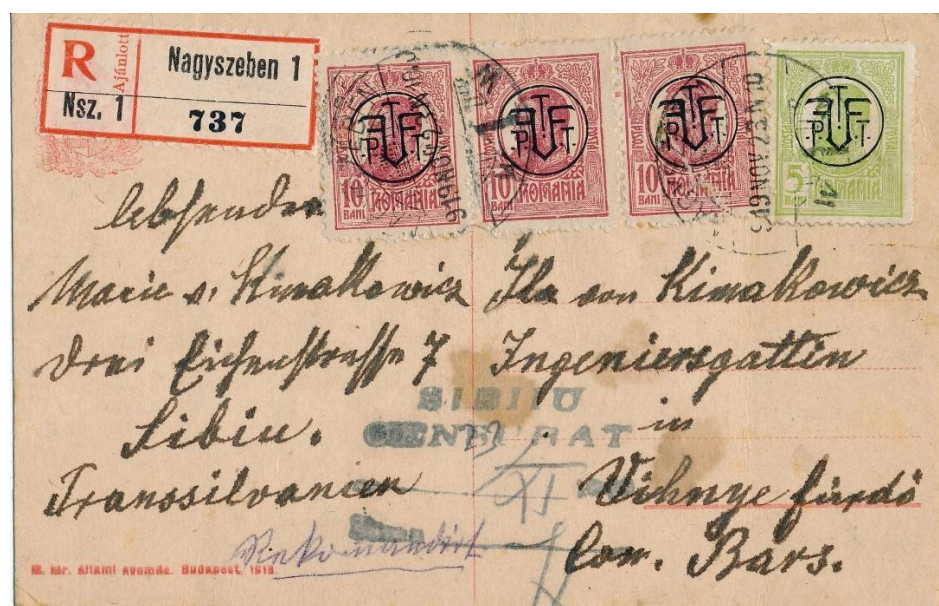 R Ajánlott Nagyszeben 1
Nsz. 1 737
P.T.T. P.T.T. P.T.T. P.T.T.
10 BANI ROMANIA
10 BANI ROMANIA
10 BANI ROMANIA
5 BANI ROMANIA
Absender
Marie v. Kimakowicz
Drei Eichenstrasse 7
Sibiu.
Transsilvanien
Rekomandirt
Ila von Kimakowicz
Ingeniersgattin
in
Vihnye fürdő
Com. Bars.
SIBIIU
CENZURAT
M. kir. állami nyomda. Budapest. 1918.